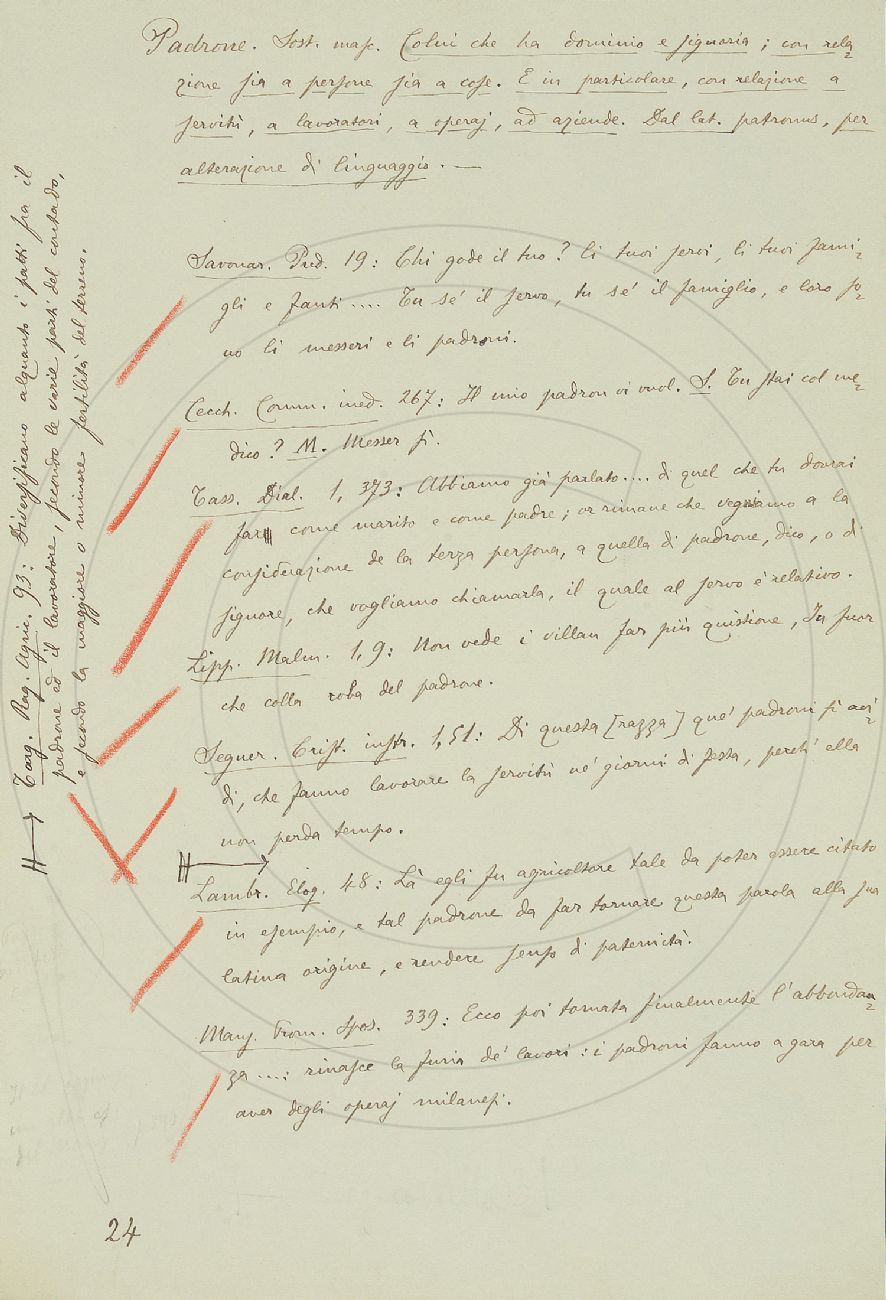 Padrone. Sost. masc. Colui che ha dominio e signoria; con rela-
zione sia a persone sia a cose. E in particolare, con relazione a
servitù, a lavoratori, a operaj, ad aziende. Dal lat. patronus, per
alterazione di linguaggio. —
Savonar. Pred. 19: Chi gode il tuo? li tuoi servi, li tuoi fami-
gli e fanti .... Tu se' il servo, tu se' il famiglio, e loro so-
no li messeri e li padroni.
Cecch. Comm. ined. 267: Il mio padron vi vuol. S. Tu stai col me-
dico? M. Messer sì.
Tass. Dial. 1, 373: Abbiamo già parlato .... di quel che tu dovrai
fare come marito e come padre; or rimane che vegniamo a la
considerazione de la terza persona, a quella di padrone, dico, o di
signore, che vogliamo chiamarla, il quale al servo è relativo.
Lipp. Malm. 1, 9: Non vede i villan far più quistione, In fuor
che colla roba del padrone.
Segner. Crist. instr. 1, 51: Di questa [razza] que' padroni sì avi-
di, che fanno lavorare la servitù ne' giorni di festa, perchè ella
non perda tempo.
Lambr. Elog. 48: Là egli fu agricoltore tale da poter essere citato
in esempio, e tal padrone da far tornare questa parola alla sua
latina origine, e rendere senso di paternità.
Manz. Prom. Spos. 339: Ecco poi tornata finalmente l'abbondan-
za ....: rinasce la furia de' lavori: i padroni fanno a gara per
aver degli operaj milanesi.
Targ. Rag. Agric. 93: Diversificano alquanto i patti fra il
padrone ed il lavoratore, secondo le varie parti del contado,
e secondo la maggiore o minore fertilità del terreno.
24